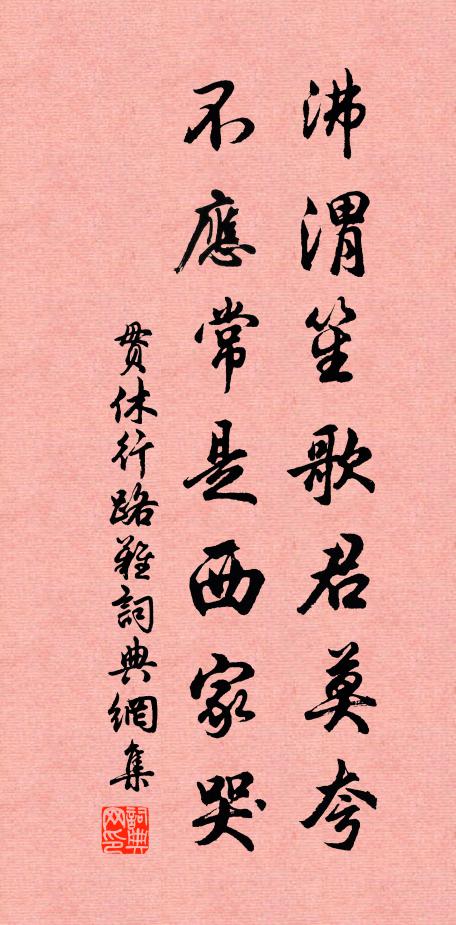 沸渭笙歌君莫夸
不應常是西家哭
貫休行路難詞典網集
詞典網印